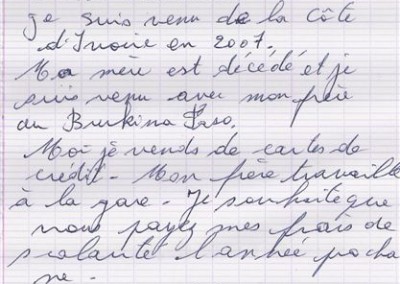 je suis venu de la côte
d'Ivoire en 2007.
Ma mère est décédé et je
suis venu avec mon frère
au Burkina Faso.
Moi je vends de cartes de
crédit. Mon frère travaille
à la gare. Je souhaite que
vous payez mes frais de
scolarité l'année pocha
ne.